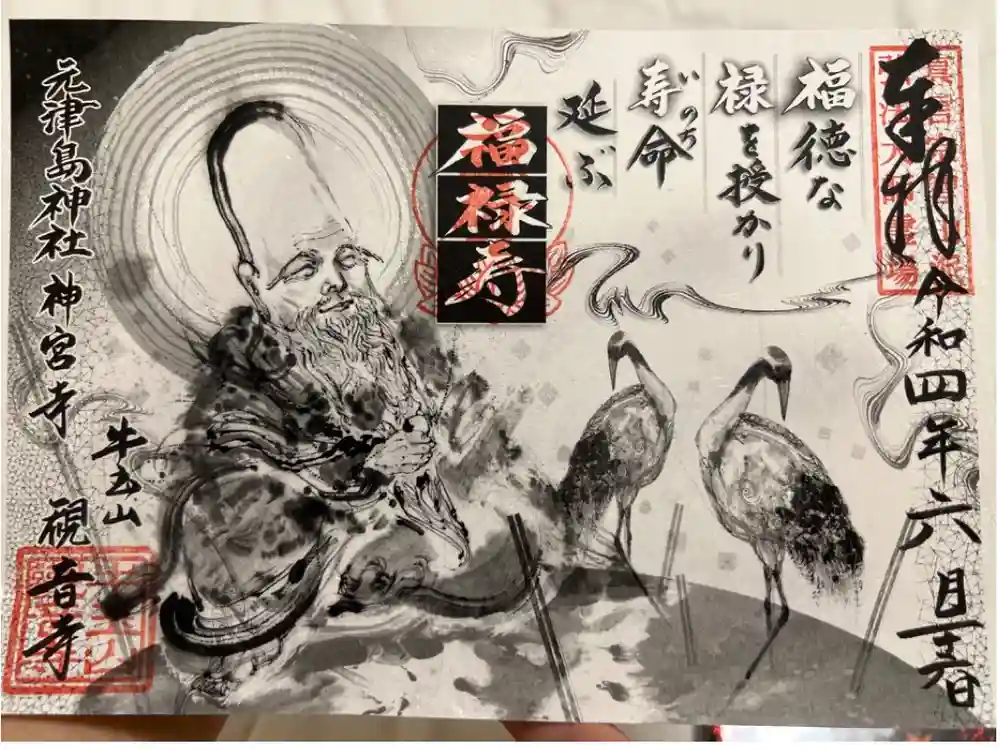 奉拝
令和四年六月
福徳な
禄を授かり
寿命
いのち
延ぶ
福禄寿
元津島神社 神宮寺
牛玉山
観音寺